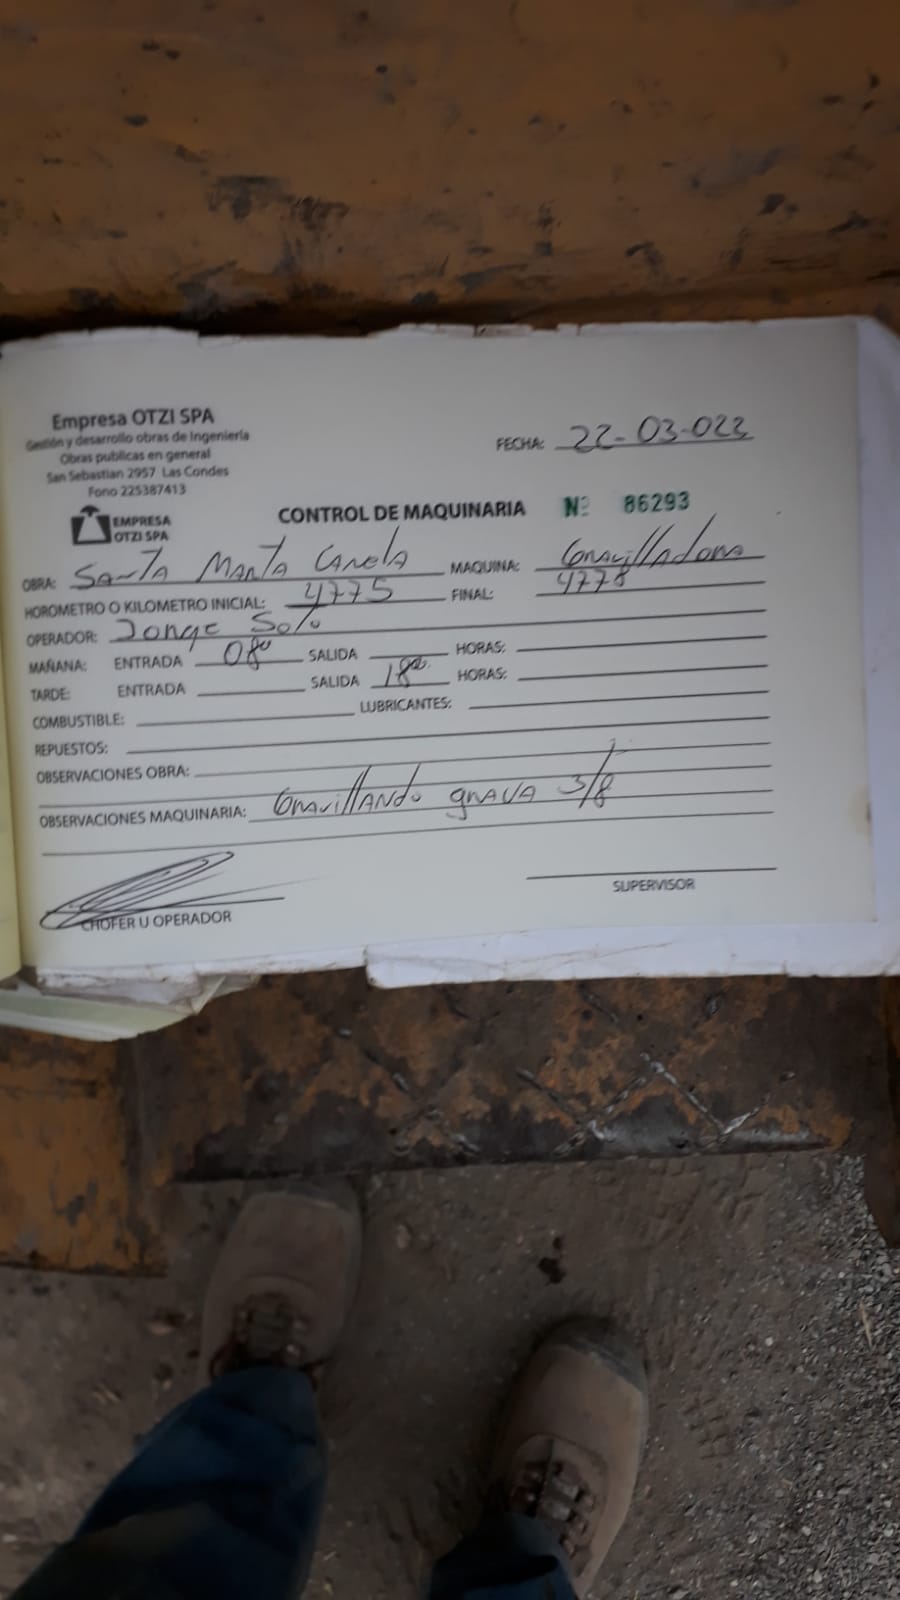 Empresa OTZI SPA
Gestión y desarrollo obras de Ingeniería
Obras publicas en general
San Sebastian 2957 Las Condes
Fono 225387413
FECHA: 22-03-023
EMPRESA
OTZI SPA
CONTROL DE MAQUINARIA Nº 86293
OBRA: Santa Marta Canela MAQUINA: Gravilladora
HOROMETRO O KILOMETRO INICIAL: 4775 FINAL: 4778
OPERADOR: Jorge Soto
MAÑANA: ENTRADA 08⁰⁰ SALIDA HORAS:
TARDE: ENTRADA SALIDA 18⁰⁰ HORAS:
COMBUSTIBLE: LUBRICANTES:
REPUESTOS:
OBSERVACIONES OBRA:
OBSERVACIONES MAQUINARIA: Gravillando grava 3/8
CHOFER U OPERADOR
SUPERVISOR